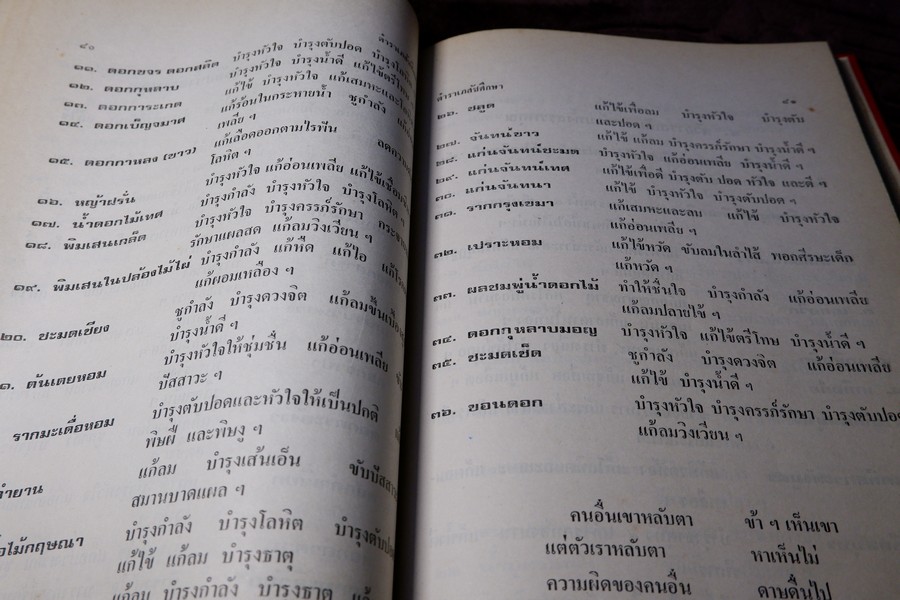 ๔๐ ตำราเภสัช
๑๑. ดอกขจร ดอกสลิด บำรุงหัวใจ บำรุงตับปอด บำรุงโลหิต
๑๒. ดอกกุหลาบ บำรุงหัวใจ บำรุงน้ำดี แก้ไข้ตรีโทษ
๑๓. ดอกการะเกด แก้ไข้ บำรุงหัวใจ แก้เสมหะและ
๑๔. ดอกเบ็ญจมาศ แก้ร้อนในกระหายน้ำ ชูกำลัง
เพลีย ๆ
๑๕. ดอกกาหลง (ขาว) แก้เลือดออกตามไรฟัน
โลหิต ๆ
บำรุงหัวใจ แก้อ่อนเพลีย แก้ไข้เพื่อ
๑๖. หญ้าฝรั่น บำรุงกำลัง บำรุงหัวใจ บำรุงโลหิต ๆ
๑๗. น้ำดอกไม้เทศ บำรุงหัวใจ บำรุงครรภ์รักษา
๑๘. พิมเสนเกล็ด รักษาแผลสด แก้ลมวิงเวียน ๆ
๑๙. พิมเสนในปล้องไม้ไผ่ บำรุงกำลัง แก้หืด แก้ไอ
แก้ผอมเหลือง ๆ
๒๐. ชะมดเชียง ชูกำลัง บำรุงดวงจิต แก้ลมขึ้นเบื้อง
บำรุงน้ำดี ๆ
๑. ต้นเตยหอม บำรุงหัวใจให้ชุ่มชื่น แก้อ่อนเพลีย
ปัสสาวะ ๆ
รากมะเดื่อหอม บำรุงตับปอดและหัวใจให้เป็นปกติ
พิษฝี และพิษงู ๆ
กำยาน แก้ลม บำรุงเส้นเอ็น ขับปัสสาวะ
สมานบาดแผล ๆ
ไม้กฤษณา บำรุงกำลัง บำรุงโลหิต บำรุงตับปอด
แก้ไข้ แก้ลม บำรุงธาตุ
แก้ลม บำรุงกำลัง บำรุงธาตุ แก้
ตำราเภสัชศึกษา ๔๑
๒๖. ชลูด แก้ไข้เพื่อลม บำรุงหัวใจ บำรุงตับ
และปอด ๆ
๒๗. จันทน์ขาว แก้ไข้ แก้ลม บำรุงครรภ์รักษา บำรุงน้ำดี ๆ
๒๘. แก่นจันทน์ชะมด บำรุงหัวใจ แก้อ่อนเพลีย บำรุงน้ำดี ๆ
๒๙. แก่นจันทน์เทศ แก้ไข้เพื่อดี บำรุงตับ ปอด หัวใจ และดี ๆ
๓๐. แก่นจันทนา แก้ไข้ บำรุงหัวใจ บำรุงตับปอด ๆ
๓๑. รากกรุงเขมา แก้เสมหะและลม แก้ไข้ บำรุงหัวใจ
แก้อ่อนเพลีย ๆ
๓๒. เปราะหอม แก้ไข้หวัด ขับลมในลำไส้ พอกศีรษะเด็ก
แก้หวัด ๆ
๓๓. ผลชมพู่น้ำดอกไม้ ทำให้ชื่นใจ บำรุงกำลัง แก้อ่อนเพลีย
แก้ลมปลายไข้ ๆ
๓๔. ดอกกุหลาบมอญ บำรุงหัวใจ แก้ไข้ตรีโทษ บำรุงน้ำดี ๆ
๓๕. ชะมดเช็ด ชูกำลัง บำรุงดวงจิต แก้อ่อนเพลีย
แก้ไข้ บำรุงน้ำดี ๆ
๓๖. ขอนดอก บำรุงหัวใจ บำรุงครรภ์รักษา บำรุงตับปอด
แก้ลมวิงเวียน ๆ
คนอื่นเขาหลับตา ข้า ๆ เห็นเขา
แต่ตัวเราหลับตา หาเห็นไม่
ความผิดของคนอื่น ดาษดื่นไป